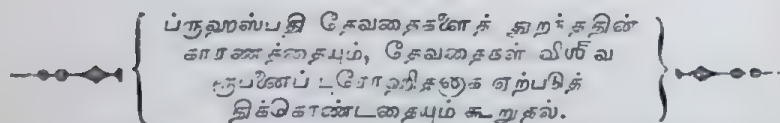 ப்ருஹஸ்பதி தேவதைகளைத் துறந்ததின்
காரணத்தையும், தேவதைகள் விஶ்வ
ரூபனைப் புரோஹிதனாக ஏற்படுத்
திக்கொண்டதையும் கூறுதல்.